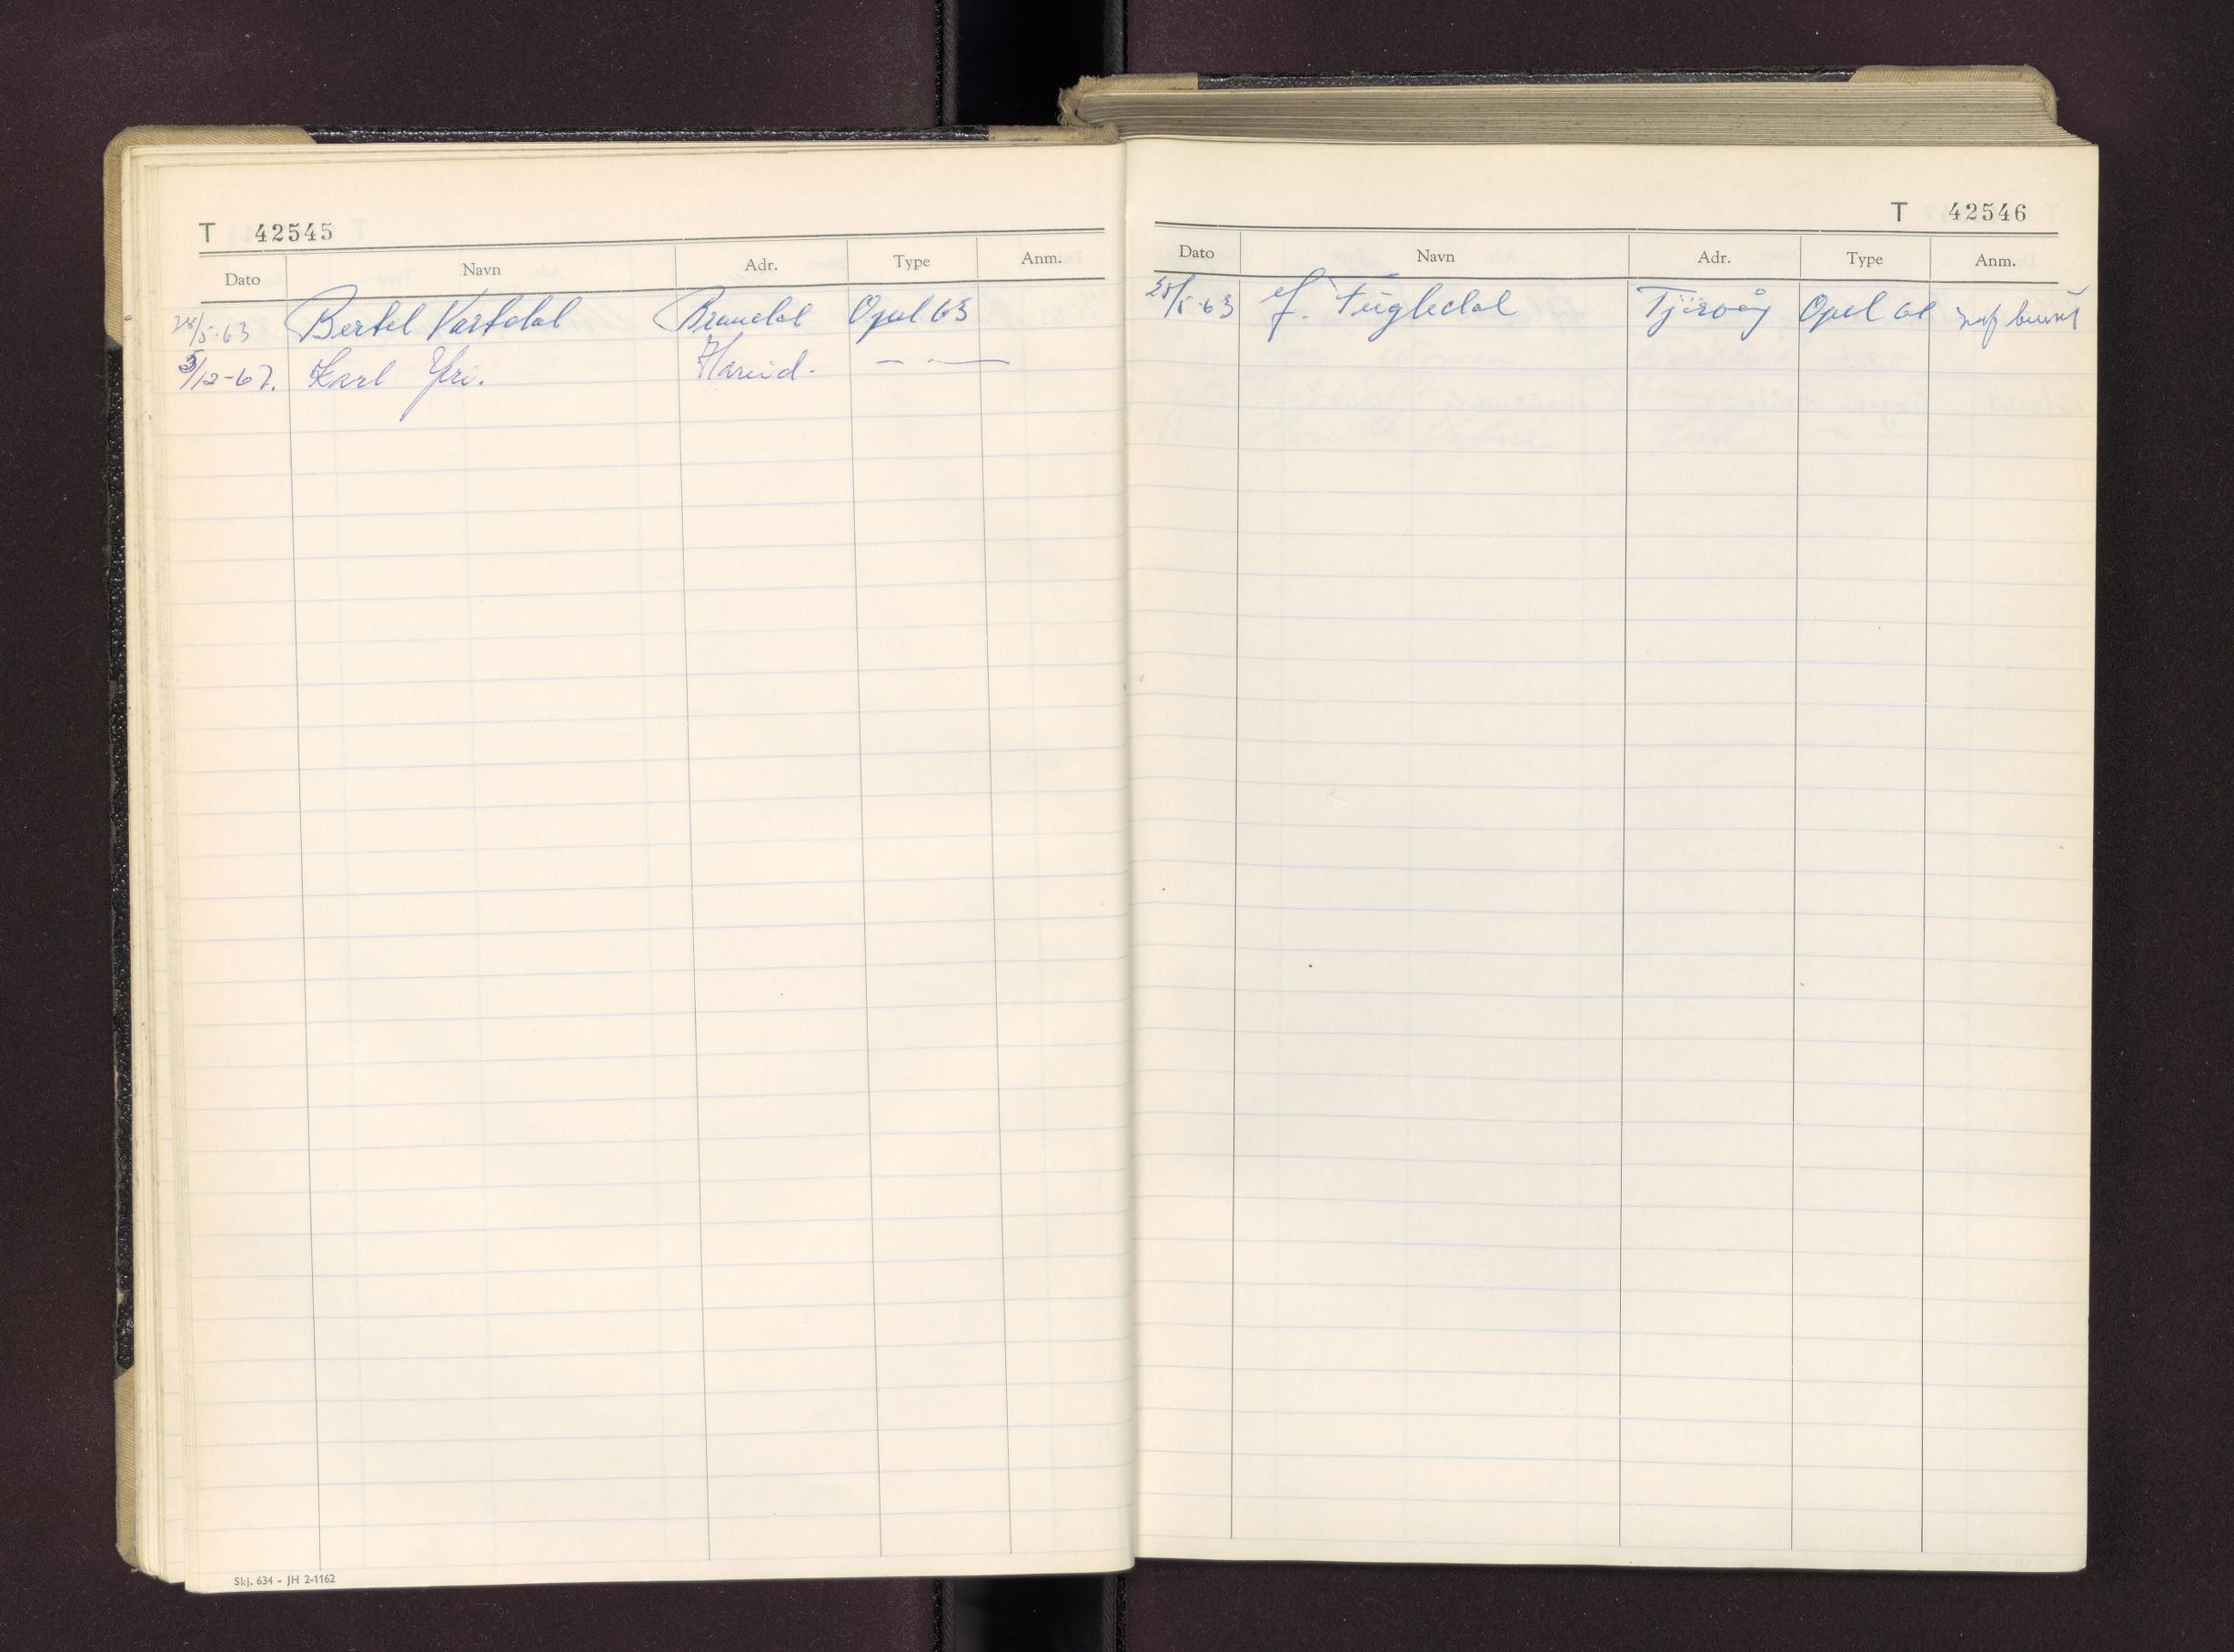 T 42545
Dato Navn Adr. Type Anm.
28/5-63 Bertel Vartdal Brandal Opel 63
5/12-67. Karl Yri. Hareid. — —
Skj. 634 - JH 2-1162
T 42546
Dato Navn Adr. Type Anm.
28/5-63 J. Fugledal Tjørvåg Opel 61